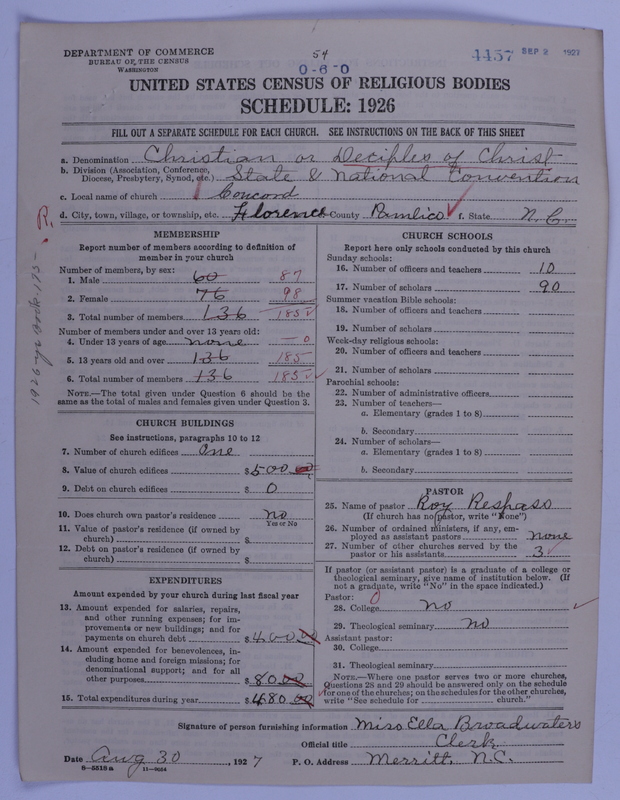 DEPARTMENT OF COMMERCE
BUREAU OF THE CENSUS
WASHINGTON
54
0-6-0
4457 SEP 2 1927
UNITED STATES CENSUS OF RELIGIOUS BODIES
SCHEDULE: 1926
FILL OUT A SEPARATE SCHEDULE FOR EACH CHURCH. SEE INSTRUCTIONS ON THE BACK OF THIS SHEET
a. Denomination Christian or Deciples of Christ
b. Division (Association, Conference, Diocese, Presbytery, Synod, etc.) State & National Convention
c. Local name of church Concord
d. City, town, village, or township, etc. Florence County Pamlico f. State N.C.
R.
1926-yr Book-175-
MEMBERSHIP
Report number of members according to definition of
member in your church
Number of members, by sex:
1. Male 60 87
2. Female 76 98
3. Total number of members 136 185
Number of members under and over 13 years old:
4. Under 13 years of age none - 0
5. 13 years old and over 136 185
6. Total number of members 136 185
NOTE.—The total given under Question 6 should be the
same as the total of males and females given under Question 3.
CHURCH BUILDINGS
See instructions, paragraphs 10 to 12
7. Number of church edifices One
8. Value of church edifices $500 00
9. Debt on church edifices $ 0
10. Does church own pastor's residence? No
Yes or No
11. Value of pastor's residence (if owned by
church) $
12. Debt on pastor's residence (if owned by
church) $
EXPENDITURES
Amount expended by your church during last fiscal year
13. Amount expended for salaries, repairs,
and other running expenses; for im-
provements or new buildings; and for
payments on church debt $400 00
14. Amount expended for benevolences, in-
cluding home and foreign missions; for
denominational support; and for all
other purposes $80 00
15. Total expenditures during year $480 00
CHURCH SCHOOLS
Report here only schools conducted by this church
Sunday schools:
16. Number of officers and teachers 10
17. Number of scholars 90
Summer vacation Bible schools:
18. Number of officers and teachers
19. Number of scholars
Week-day religious schools:
20. Number of officers and teachers
21. Number of scholars
Parochial schools:
22. Number of administrative officers
23. Number of teachers—
a. Elementary (grades 1 to 8)
b. Secondary
24. Number of scholars—
a. Elementary (grades 1 to 8)
b. Secondary
PASTOR
25. Name of pastor Roy Respass
(If church has no pastor, write "None")
26. Number of ordained ministers, if any, em-
ployed as assistant pastors none
27. Number of other churches served by the
pastor or his assistants 3
If pastor (or assistant pastor) is a graduate of a college or
theological seminary, give name of institution below. (If
not a graduate, write "No" in the space indicated.)
Pastor: 0
28. College No
29. Theological seminary No
Assistant pastor:
30. College
31. Theological seminary
NOTE.—Where one pastor serves two or more churches,
Questions 28 and 29 should be answered only on the schedule
for one of the churches; on the schedules for the other churches,
write "See schedule for church."
Signature of person furnishing information Miss Ella Broadwaters
Official title Clerk
Date Aug 30, 1927 P. O. Address Merritt, N.C.
8—5518a 11—9054